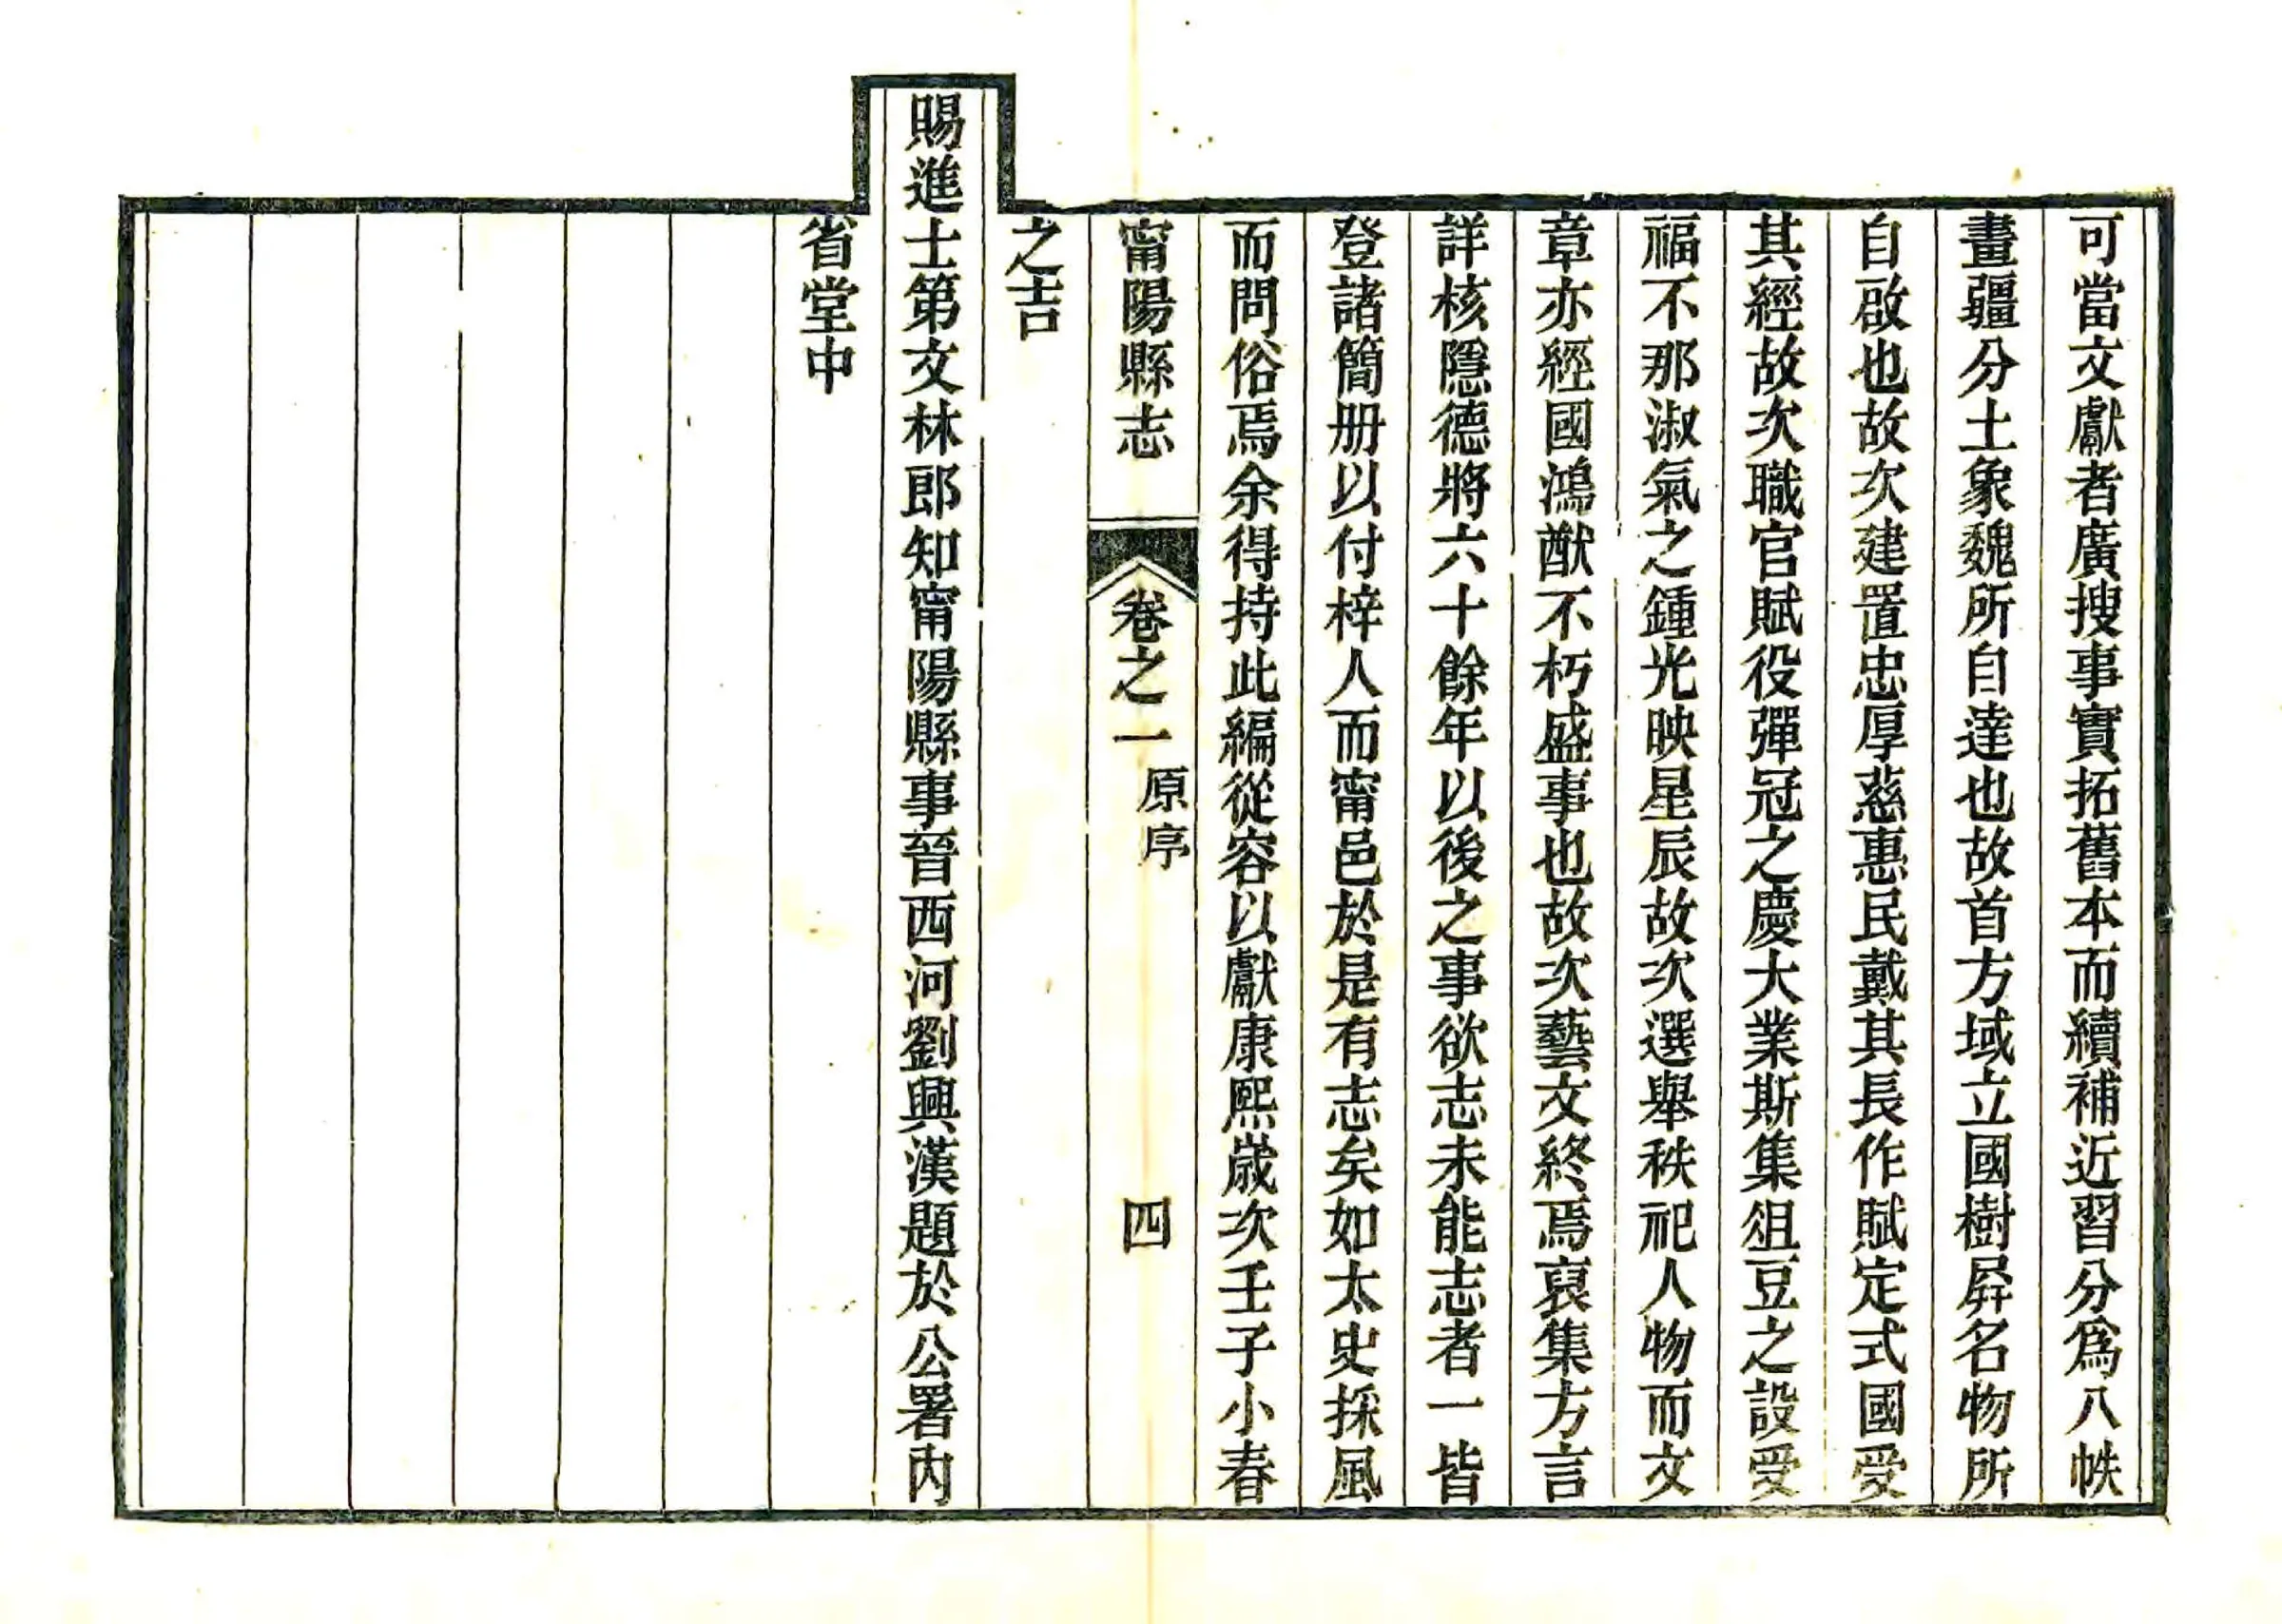 可當文獻者廣搜事實拓舊本而續補近習分爲八帙
畫疆分土象魏所自達也故首方域立國樹屛名物所
自啟也故次建置忠厚慈惠民戴其長作賦定式國受
其經故次職官賦役彈冠之慶大業斯集俎豆之設受
福不那淑氣之鍾光映星辰故次選舉秩祀人物而文
章亦經國鴻猷不朽盛事也故次藝文終焉裒集方言
詳核隱德將六十餘年以後之事欲志未能志者一皆
登諸簡册以付梓人而甯邑於是有志矣如太史採風
而問俗焉余得持此編從容以獻康熙歲次壬子小春
甯陽縣志 卷之一 原序 四
之吉
賜進士第文林郎知甯陽縣事晉西河劉興漢題於公署內
省堂中